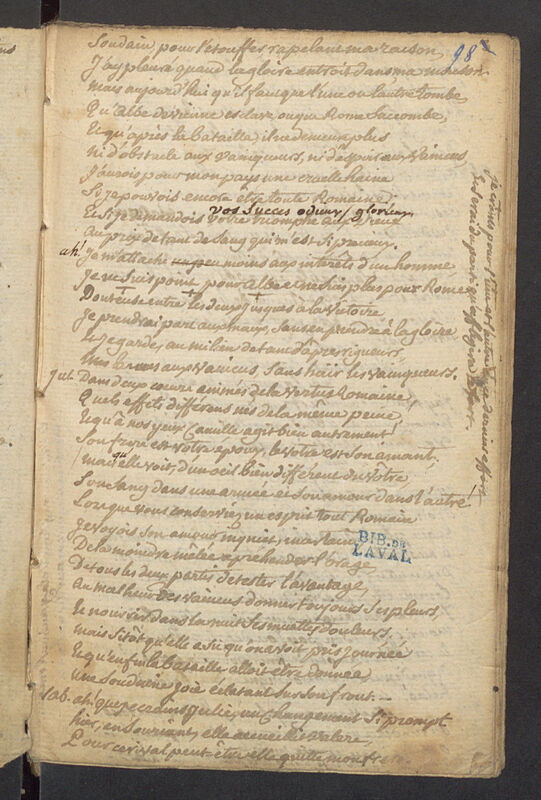 98
Soudain, pour l'étouffer rapelant ma raison,
J'ay pleuré quand la gloire entroit dans ma maison.
mais aujourd'hui qu'il faut que l'une ou l'autre tombe,
Qu'Albe devienne esclave, ou que Rome succombe,
Et qu'après la bataille, il ne demeure plus
ni d'obstacle aux vainqueurs, ni d'espoir aux vaincus
J'aurois pour mon pays une cruelle haine
Si je pouvois encore être toute Romaine,
vos succès odieux / glorieux
Et si je demandois votre triomphe aux dieux
Au prix de tant de sang qui m'est si precieux.
ah! Je m'attache un peu moins aux intérêts d'un homme,
Je ne suis point pour Albe et ne suis plus pour Rome
Douteuse entre les deux jusques à la victoire
Je prendrai part aux maux, sans en prendre à la gloire
Et je garde, au milieu de tant d'âpres rigueurs,
Mes larmes aux vaincus, sans haïr les vainqueurs.
Jul. Dans deux cœurs animés de la vertu Romaine,
Quels effets différens nés de la même peine
Et qu'à nos yeux Camille agit bien autrement!
Son frere est votre epoux, le votre est son amant,
mais qu'elle voit d'un œil bien différent du vôtre
Son sang dans une armée et son amour dans l'autre
Lorsque vous conserviez un esprit tout Romain
Je voyois son amour inquiet, incertain
De la moindre mêlée apréhender l'orage,
De tous les deux partis detester l'avantage,
Au malheur des vaincus donner toujours ses pleurs,
Et nourrir dans la nuit ses muettes douleurs.
mais sitôt qu'elle a su qu'on avoit pris journée
Et qu'enfin la bataille alloit être donnée
Une soudaine joie éclatant sur son front. —
Sab. ah! que je crains, Julie, un changement si prompt
hier, en souriant, elle accueillit Valere
Pour ce rival peut-être elle quitte mon frere.
je crains pour l'un et l'autre en ce dernier effort
Et serai du parti qu'affligera le sort.
BIB. DE
LAVAL